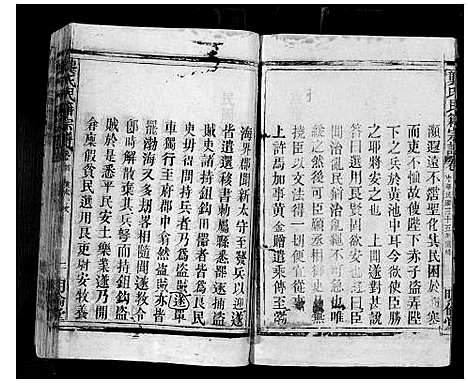 瀕遐遠不霑聖化其民困於飢寒
而吏不恤故使陛下赤子盜弄陛
下之兵於黃池中耳今欲使臣勝
之耶將安之也上聞遂對甚說
答曰選用良賢固欲安之也遂曰臣
聞治亂民猶治亂繩不可急也
臣以文法得一切便宜從
上許焉加黃金贈遣乘傳至渤
海界郡聞新太守至發兵以迎遂
皆遣還移書勅屬縣悉罷逐捕盜
賊吏諸持鋤鈎田器者皆為良民
吏毋得問持兵者乃為盜賊遂單
車獨行至府郡中翕然盜賊亦皆
罷渤海又多刼畧相隨聞遂教令
即時解散棄其兵弩而持鈎鋤盜
賊於是悉平民安土樂業遂乃開
倉廩假貧民選用良吏尉安牧養